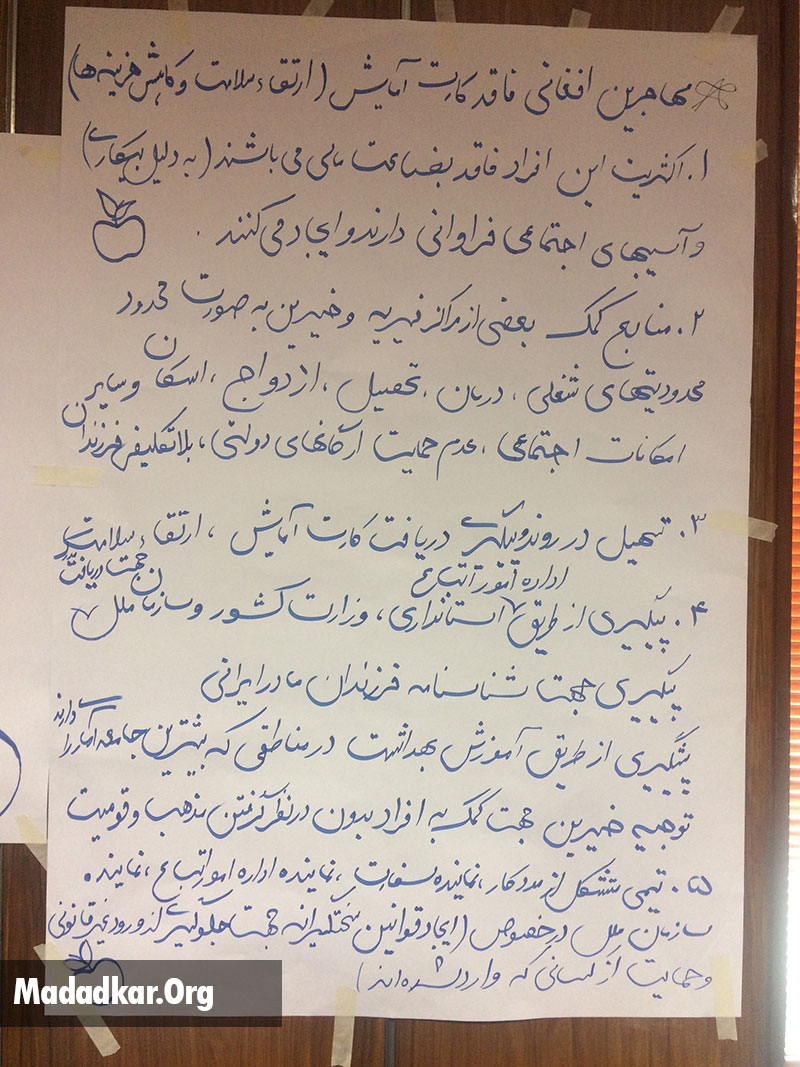 مهاجرین افغانی فاقد کارت آمایش (ارتقاء سلامت و کاهش هزینه ها)
۱. اکثریت این افراد فاقد بضاعت مالی می باشند (به دلیل بیکاری)
و آسیبهای اجتماعی فراوانی دارند و ایجاد می کنند .
۲. منابع کمک بعضی از مراکز خیریه و خیرین به صورت محدود
محدودیتهای شغلی ، درمان ، تحصیل ، ازدواج ، اسکان و سایر
امکانات اجتماعی ، عدم حمایت ارگانهای دولتی ، بلاتکلیفی فرزندان
۳. تسهیل در روند پیگیری دریافت کارت آمایش ، ارتقاء سلامت
جهت دریافت
اداره امور اتباع
۴. پیگیری از طریق استانداری ، وزارت کشور و سازمان ملل
پیگیری جهت شناسنامه فرزندان مادر ایرانی
پیشگیری از طریق آموزش بهداشت در مناطقی که بیشترین جامعه آماری را دارند
توجیه خیرین جهت کمک به افراد بدون در نظر گرفتن مذهب و قومیت
۵. تیمی متشکل از مددکار ، نماینده سفارت ، نماینده اداره امور اتباع ، نماینده
سازمان ملل در خصوص (ایجاد قوانین سختگیرانه جهت جلوگیری از ورود غیر قانونی
و حمایت از کسانی که وارد شده اند)
Madadkar.Org